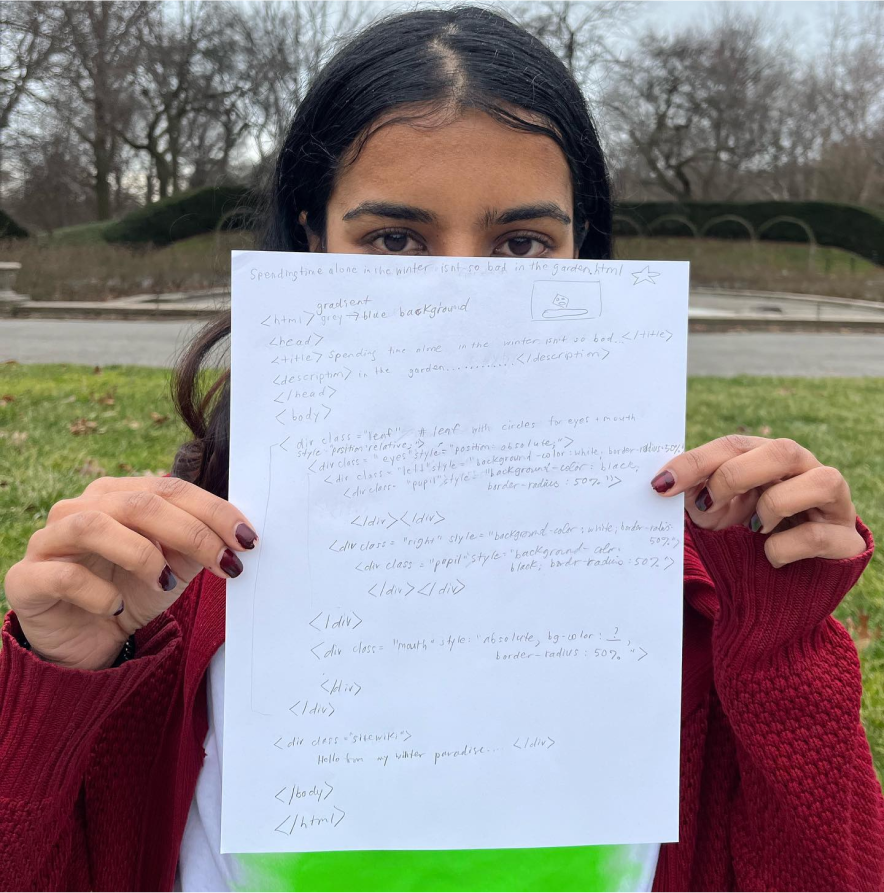 Spending time alone in the winter isnt so bad in the garden.html
gradient
<html> grey → blue background
<head>
<title> Spending time alone in the winter isn't so bad...</title>
<description> in the garden............</description>
</head>
<body>
< div class="leaf" # leaf with circles for eyes + mouth
style="position:relative;">
<div class= "eyes" style="position: absolute;">
<div class= "left" style="background-color: white; border-radius:50%"
<div class= "pupil" style= "background-color: black,
border-radius: 50%">
</div></div>
<div class= "right" style= "background-color: white; border-radius:
50%">
<div class= "pupil" style: "background-color:
black, border-radius: 50%">
</div></div>
</div>
<div class= "mouth" style: "absolute, bg-color: ?,
border-radius: 50% ">
</div>
</div>
<div class= >
Hello from my winter paradise.... </div>
</body>
</html>